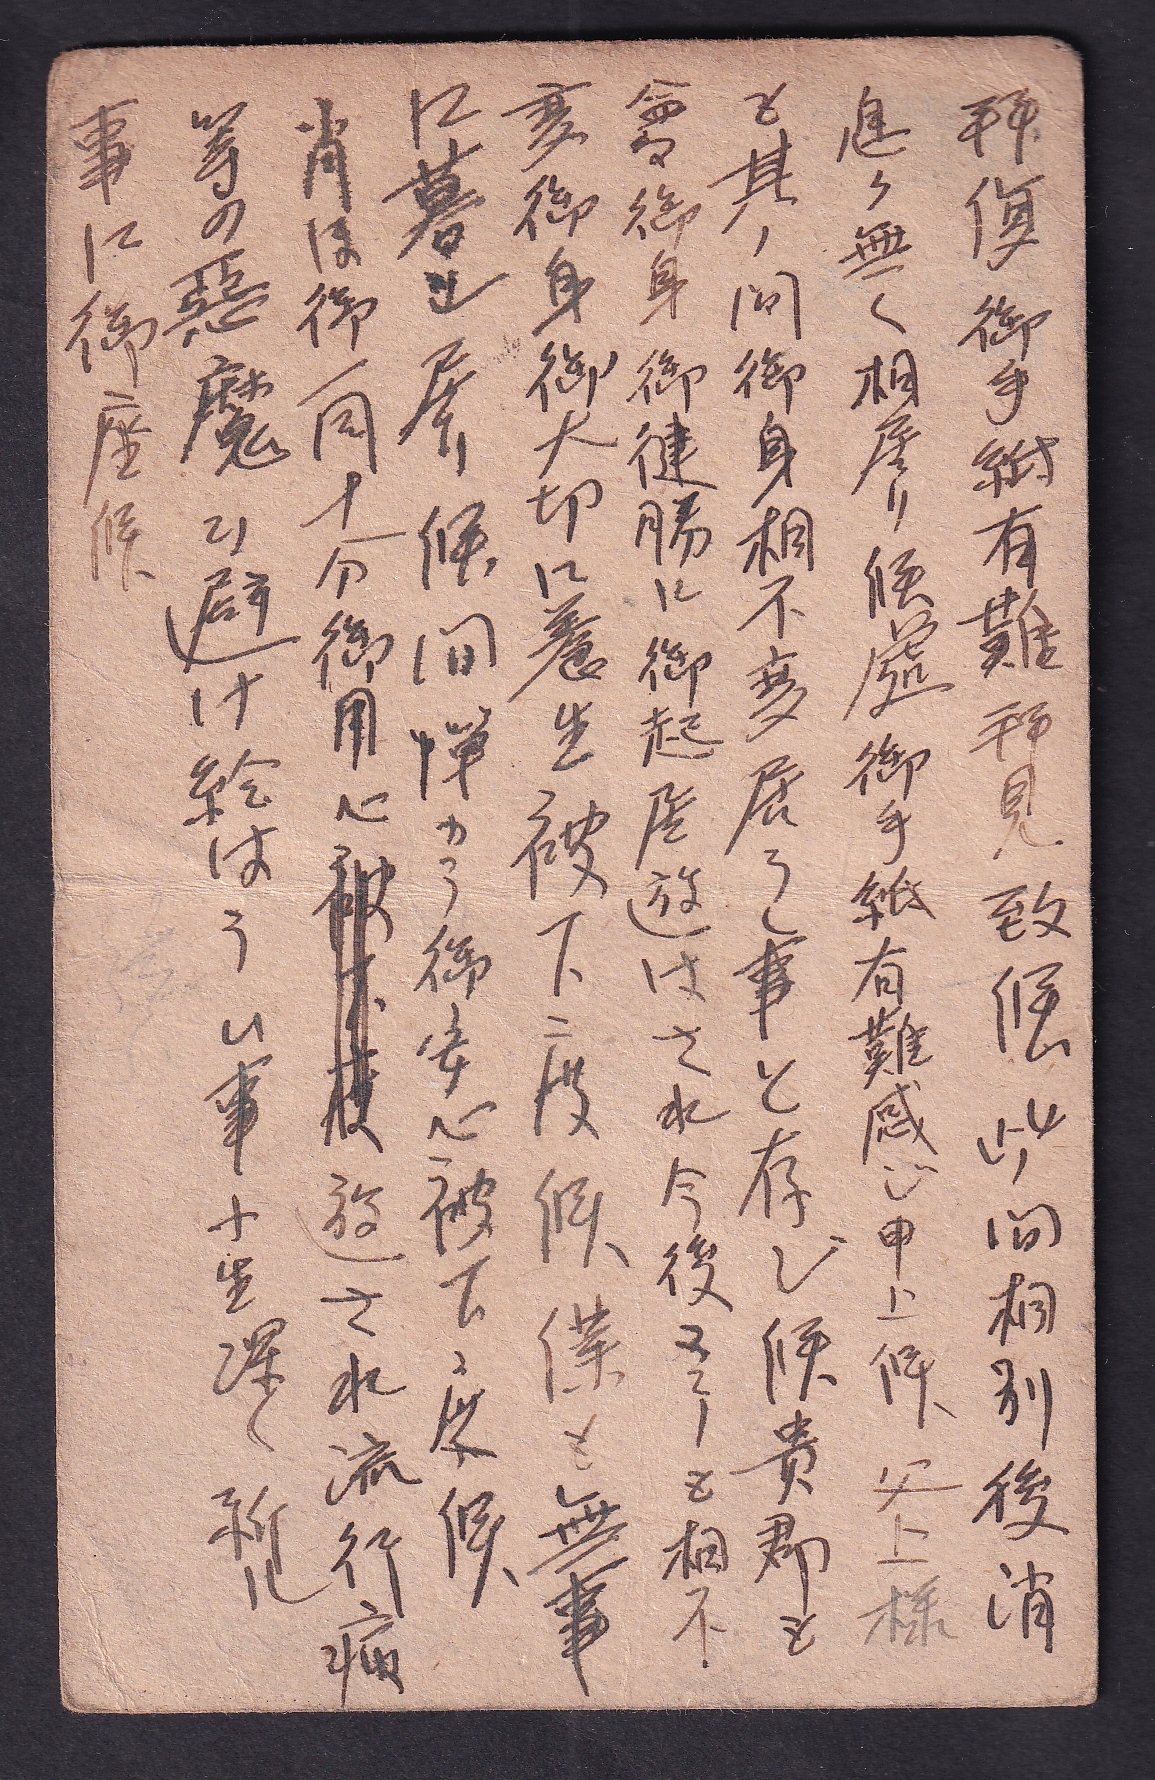 拝復御手紙有難拝見致候此ノ間相別後消
息ケ無く相居リ候處御手紙有難感心申上候、父上様
も其ノ間御身相不変居らし事と存び候貴郡も
御身御健勝に御起居遊はされ今後も相不
変御身御大切に養生被下二度候、僕も無事
に暮し居リ候間憚から御安心被下二度候、
尚ほ御一同十分御用心遊され流行病
等の悪魔を避け給はらい事小生深く祈
事に御座候、